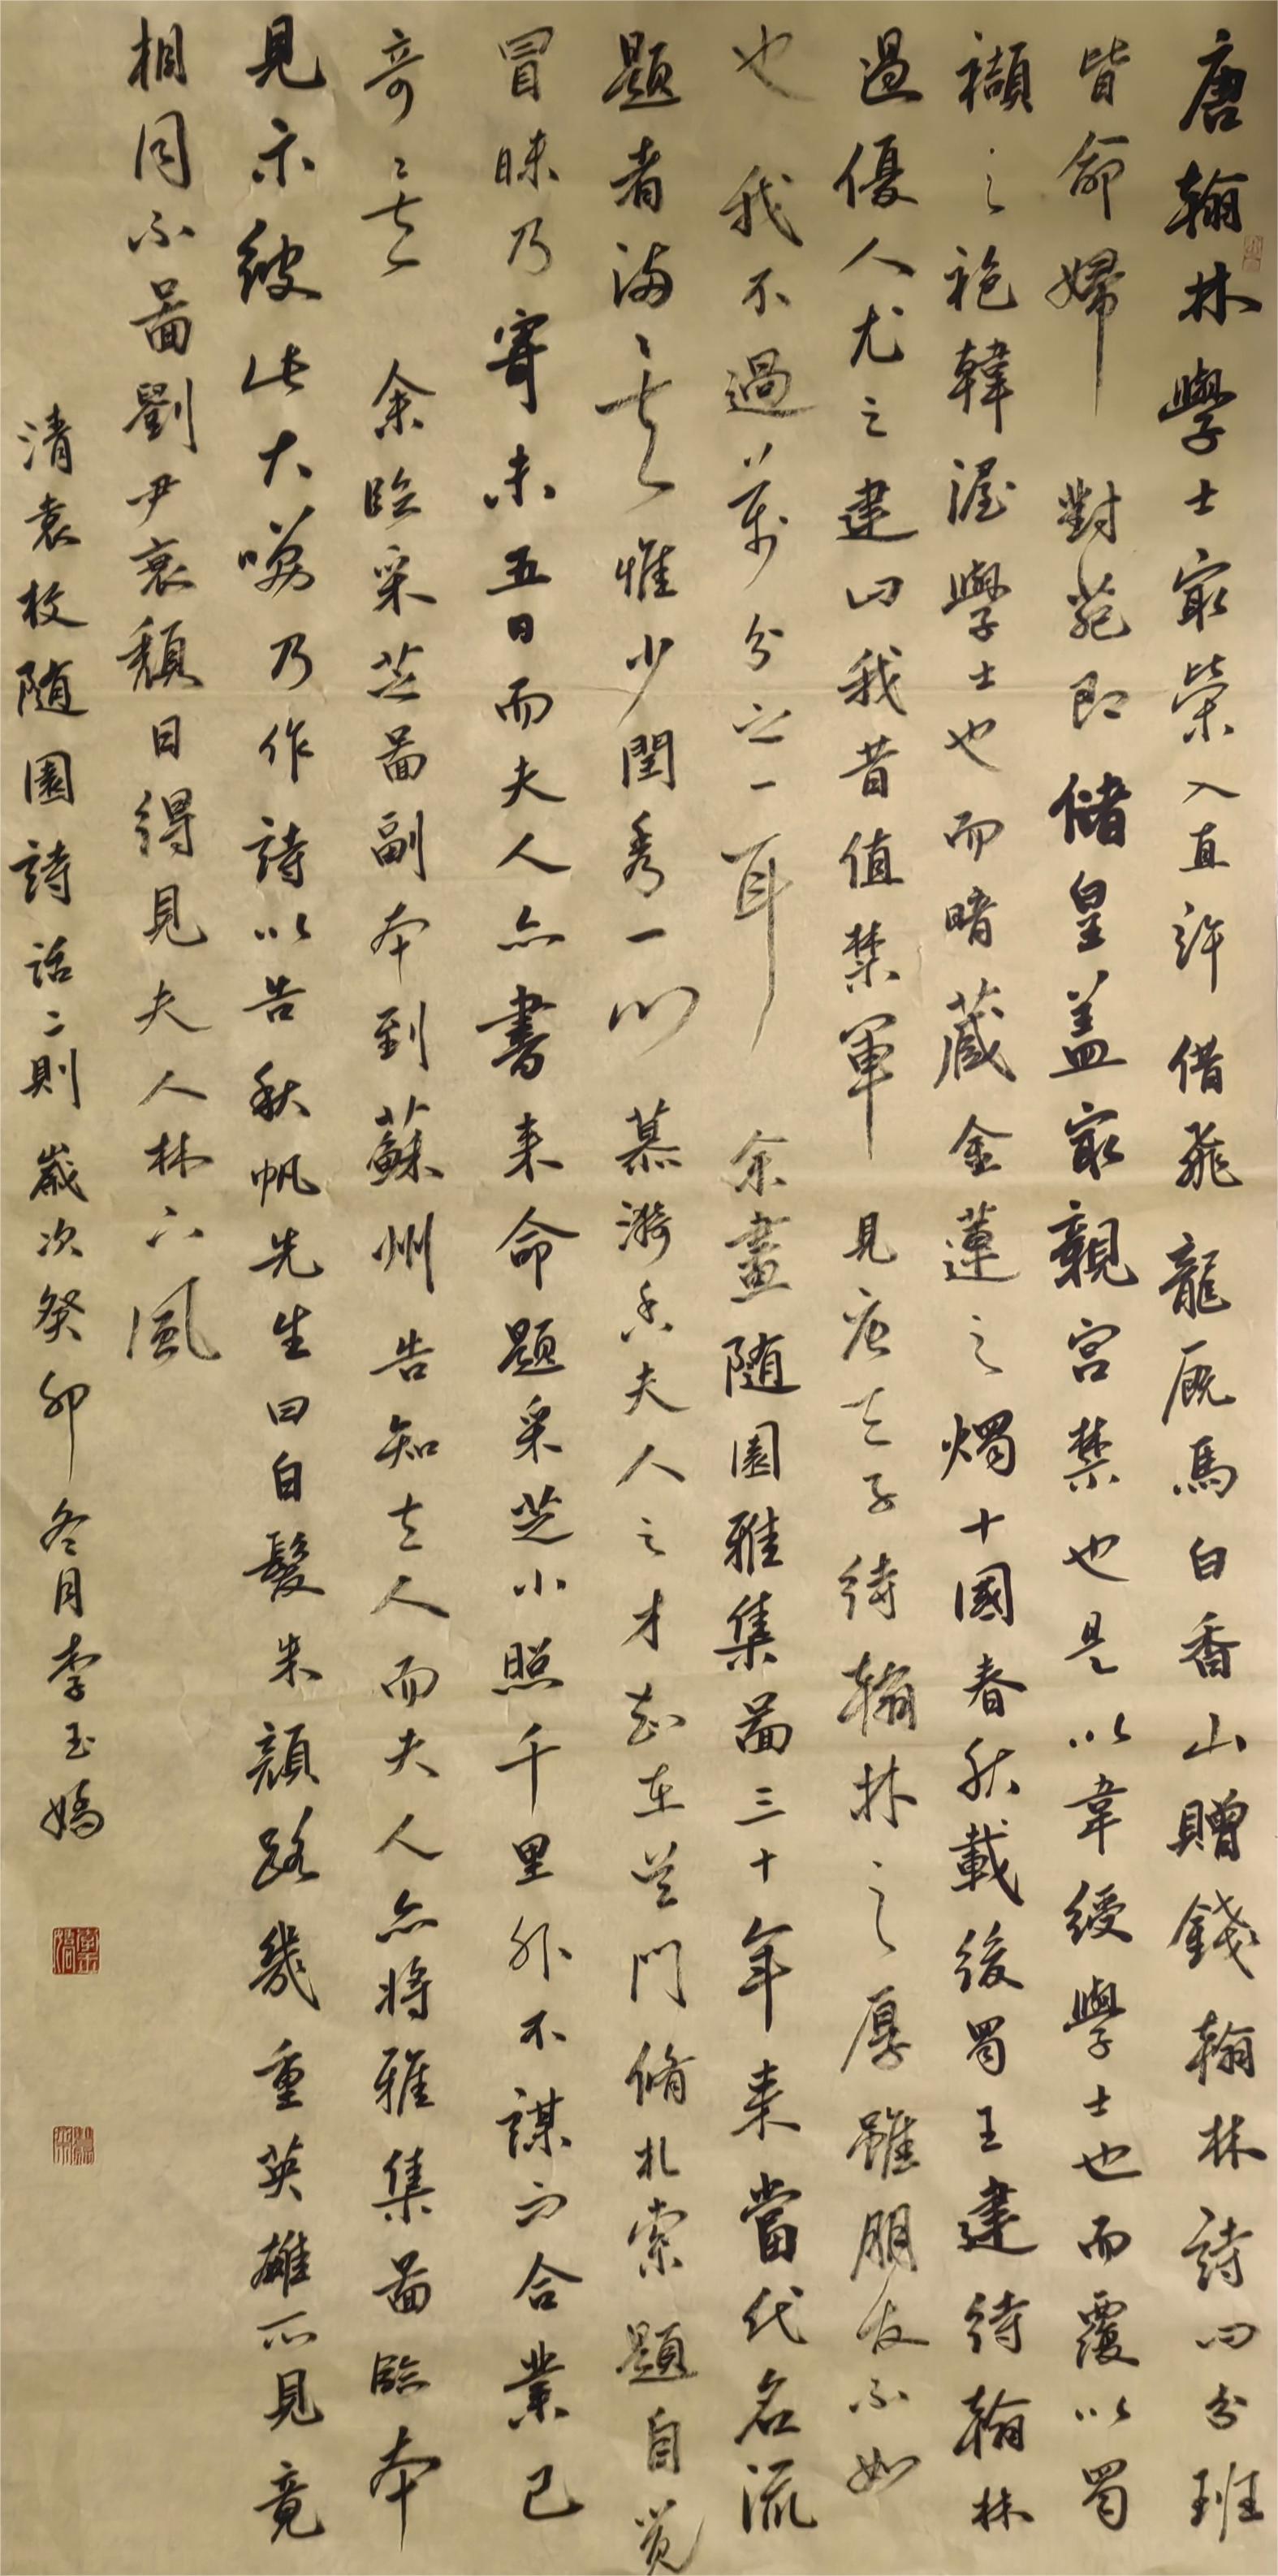 唐翰林學士最榮入直許借飛龍厩馬白香山贈錢翰林詩曰分班
皆命婦對苑即儲皇盖最親宮禁也是以韋綬學士也而覆以蜀
襭之袍韓渥學士也而暗藏金蓮之燭十國春秋載後蜀王建待翰林
過優人尤之建曰我昔值禁軍見唐天子待翰林之厚雖朋友不如
也我不過萬分之一耳余畫隨園雅集圖三十年來當代名流
題者滿矣惟少閨秀一門慕漪香夫人之才知在吳門脩札索題自覺
冒昧乃寄未五日而夫人亦書來命題采芝小照千里外不謀而合業已
奇矣余臨采芝圖副本到蘇州告知夫人而夫人亦將雅集圖臨本
見示彼此大笑乃作詩以告秋帆先生曰白髮朱顏路幾重英雄所見竟
相同不圖劉尹衰頹日得見夫人林下風
清袁枚随園詩話二則歲次癸卯冬月李玉嬌